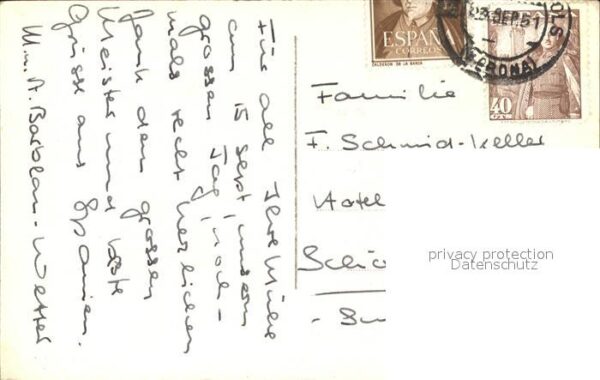 Für all Ihre Mühe
am 15. Sept. unserm
grossen Tag, noch-
mals recht herzlichen
Dank dem grossen
Meister und beste
Grüsse aus Spanien.
M. u. A. Barblan-Wetter
ESPAÑA
CORREOS
CALDERON DE LA BARCA
23 SEP 51
(GERONA)
40
CTS
Familie
F. Schmid-Keller
Hotel
privacy protection
Datenschutz